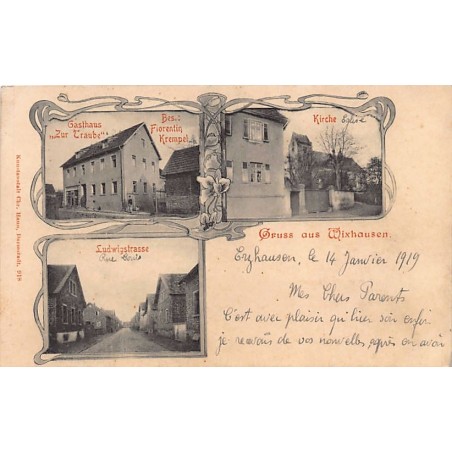 Gasthaus
„Zur Traube“
Bes.:
Florentin
Krempel
Kirche Eglise
Gruss aus Wixhausen.
Ludwigstrasse
Rue Louis
Kunstanstalt Chr. Haun, Darmstadt. 918
Erzhausen, le 14 Janvier 1919
Mes Chers Parents
C'est avec plaisir qu'hier soir enfin
je recevais de vos nouvelles, après en avoir